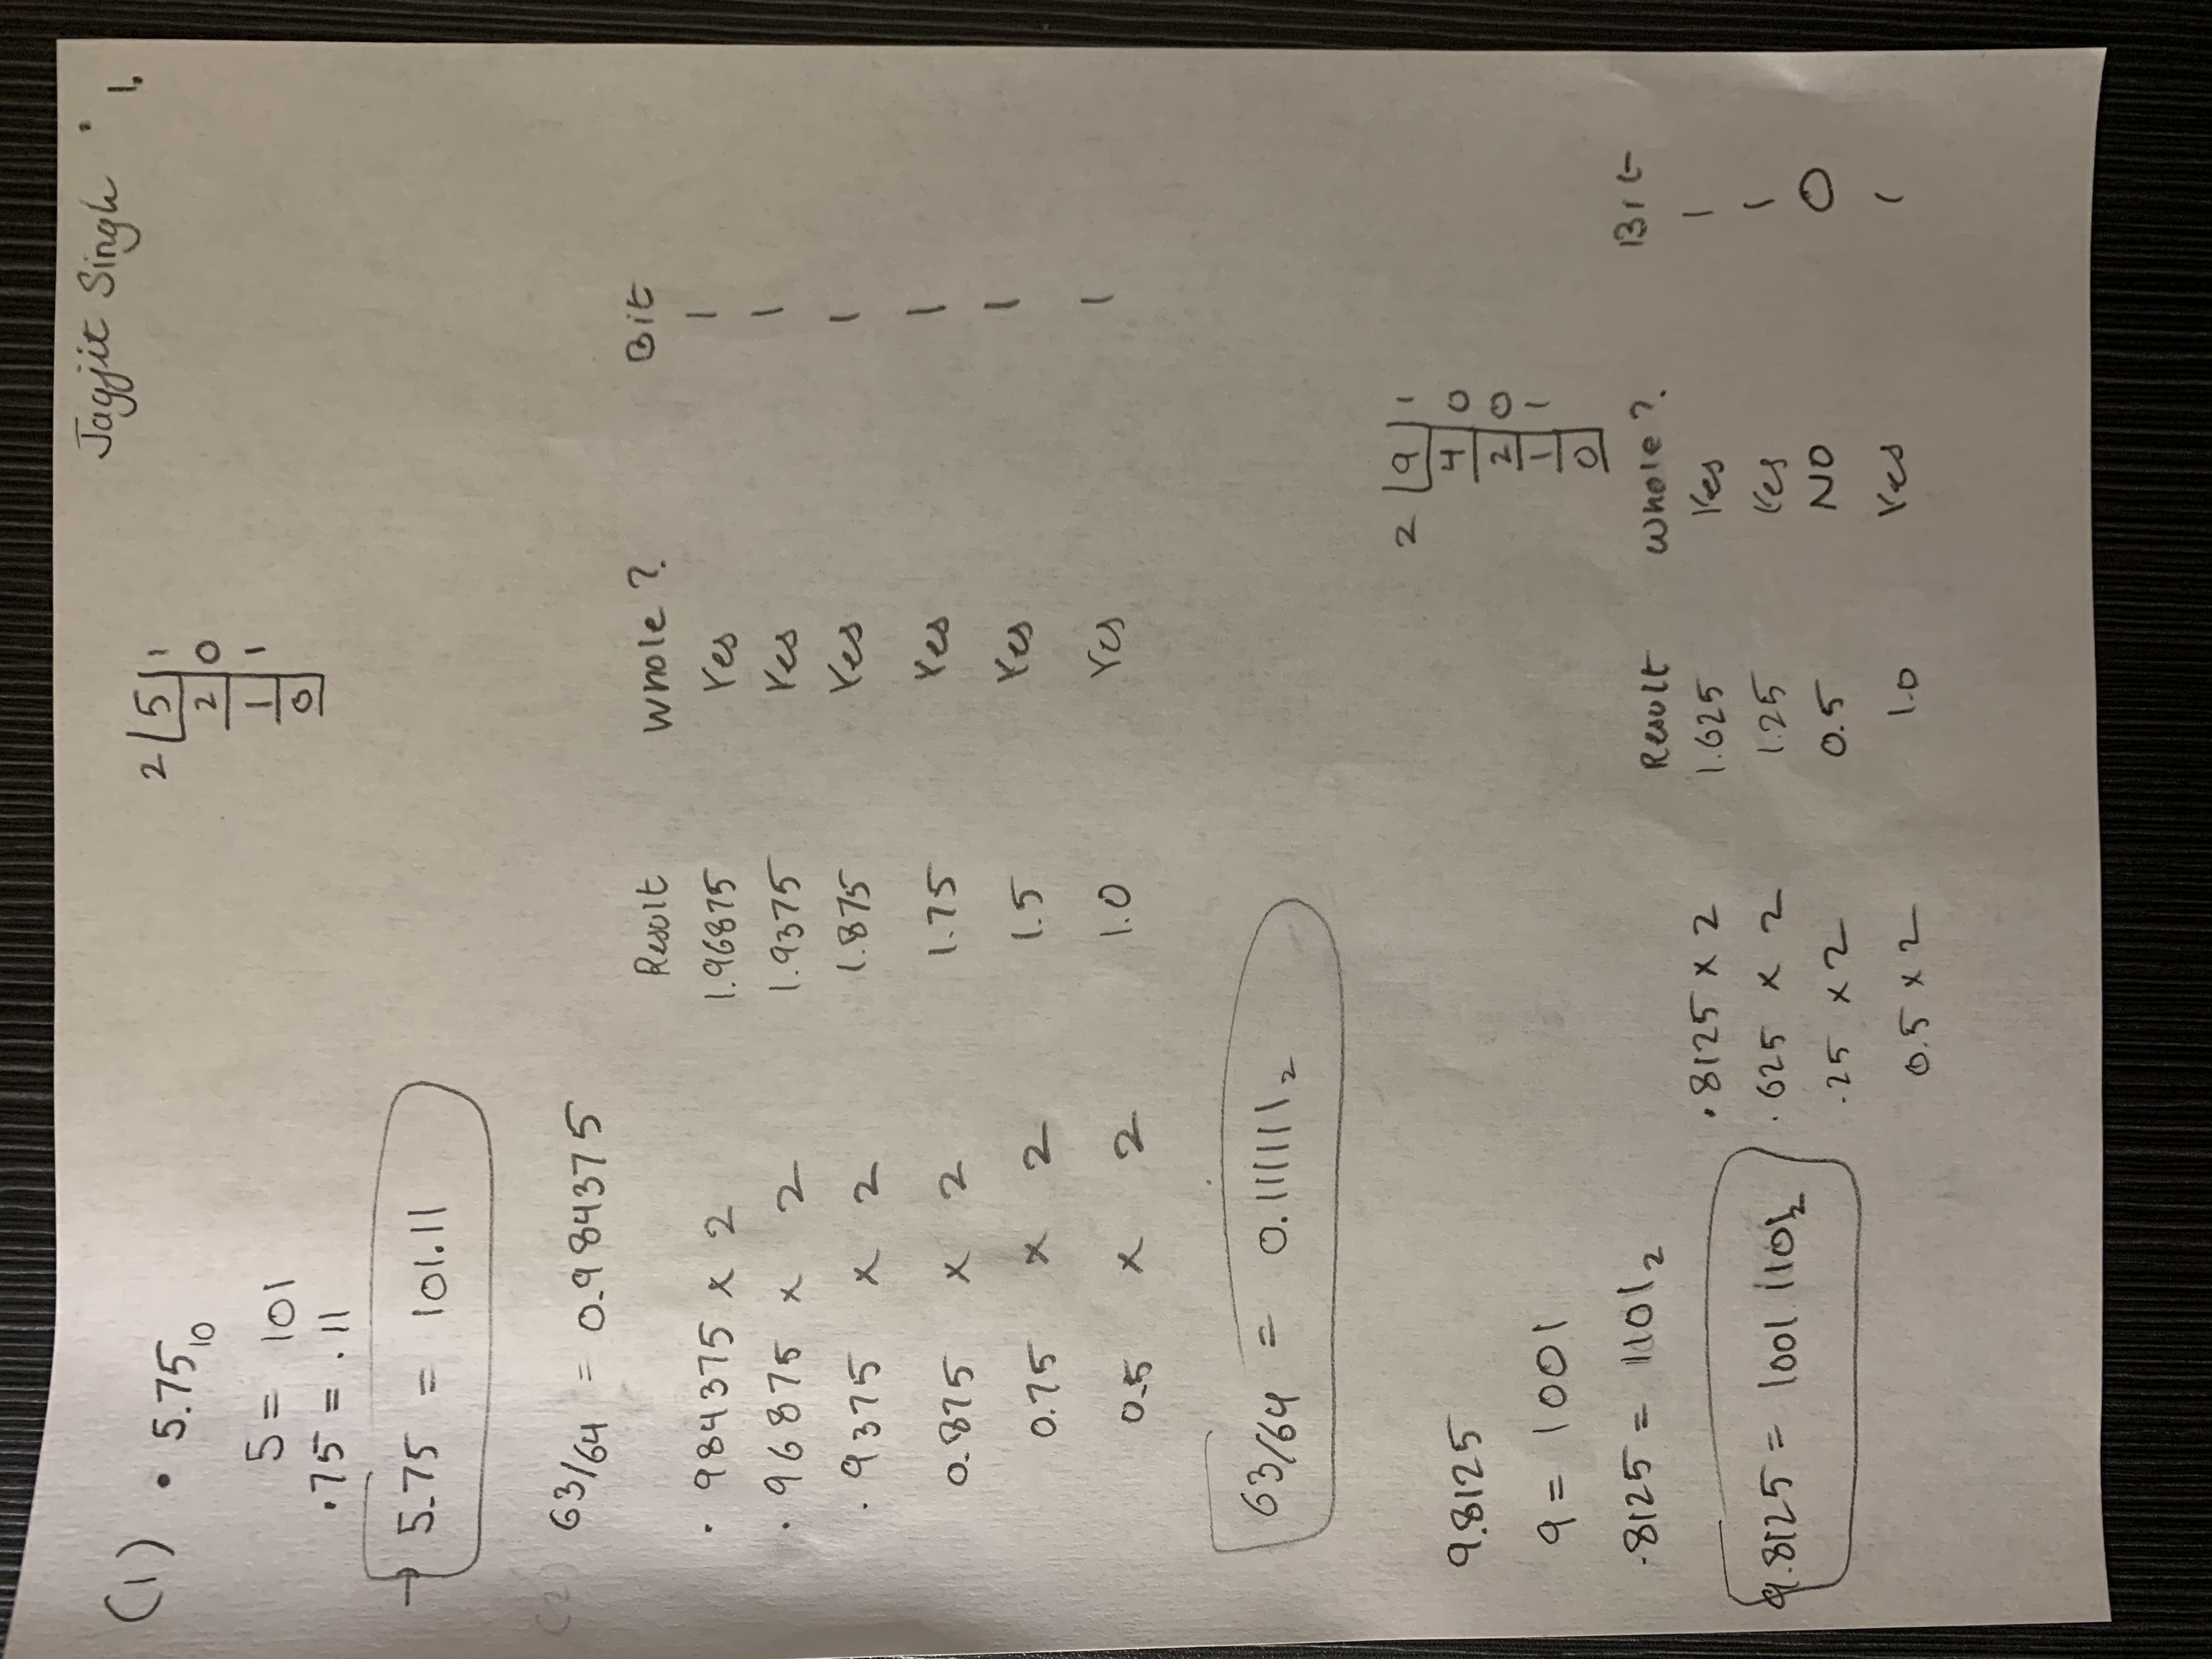 Jagjit Singh 1.
(1) • 5.75₁₀
2 5 1
2 0
1 1
0
5 = 101
.75 = .11
→ 5.75 = 101.11
(2) 63/64 = 0.984375
Result Whole? Bit
.984375 x 2 1.96875 Yes 1
.96875 x 2 1.9375 Yes 1
.9375 x 2 1.875 Yes 1
0.875 x 2 1.75 Yes 1
0.75 x 2 1.5 Yes 1
0.5 x 2 1.0 Yes 1
63/64 = 0.111111₂
2 9 1
4 0
2 0
1 1
0
9.8125
9 = 1001
.8125 = 1101₂
Result Whole? Bit
.8125 x 2 1.625 Yes 1
.625 x 2 1.25 Yes 1
.25 x 2 0.5 NO 0
0.5 x 2 1.0 Yes 1
9.8125 = 1001.1101₂